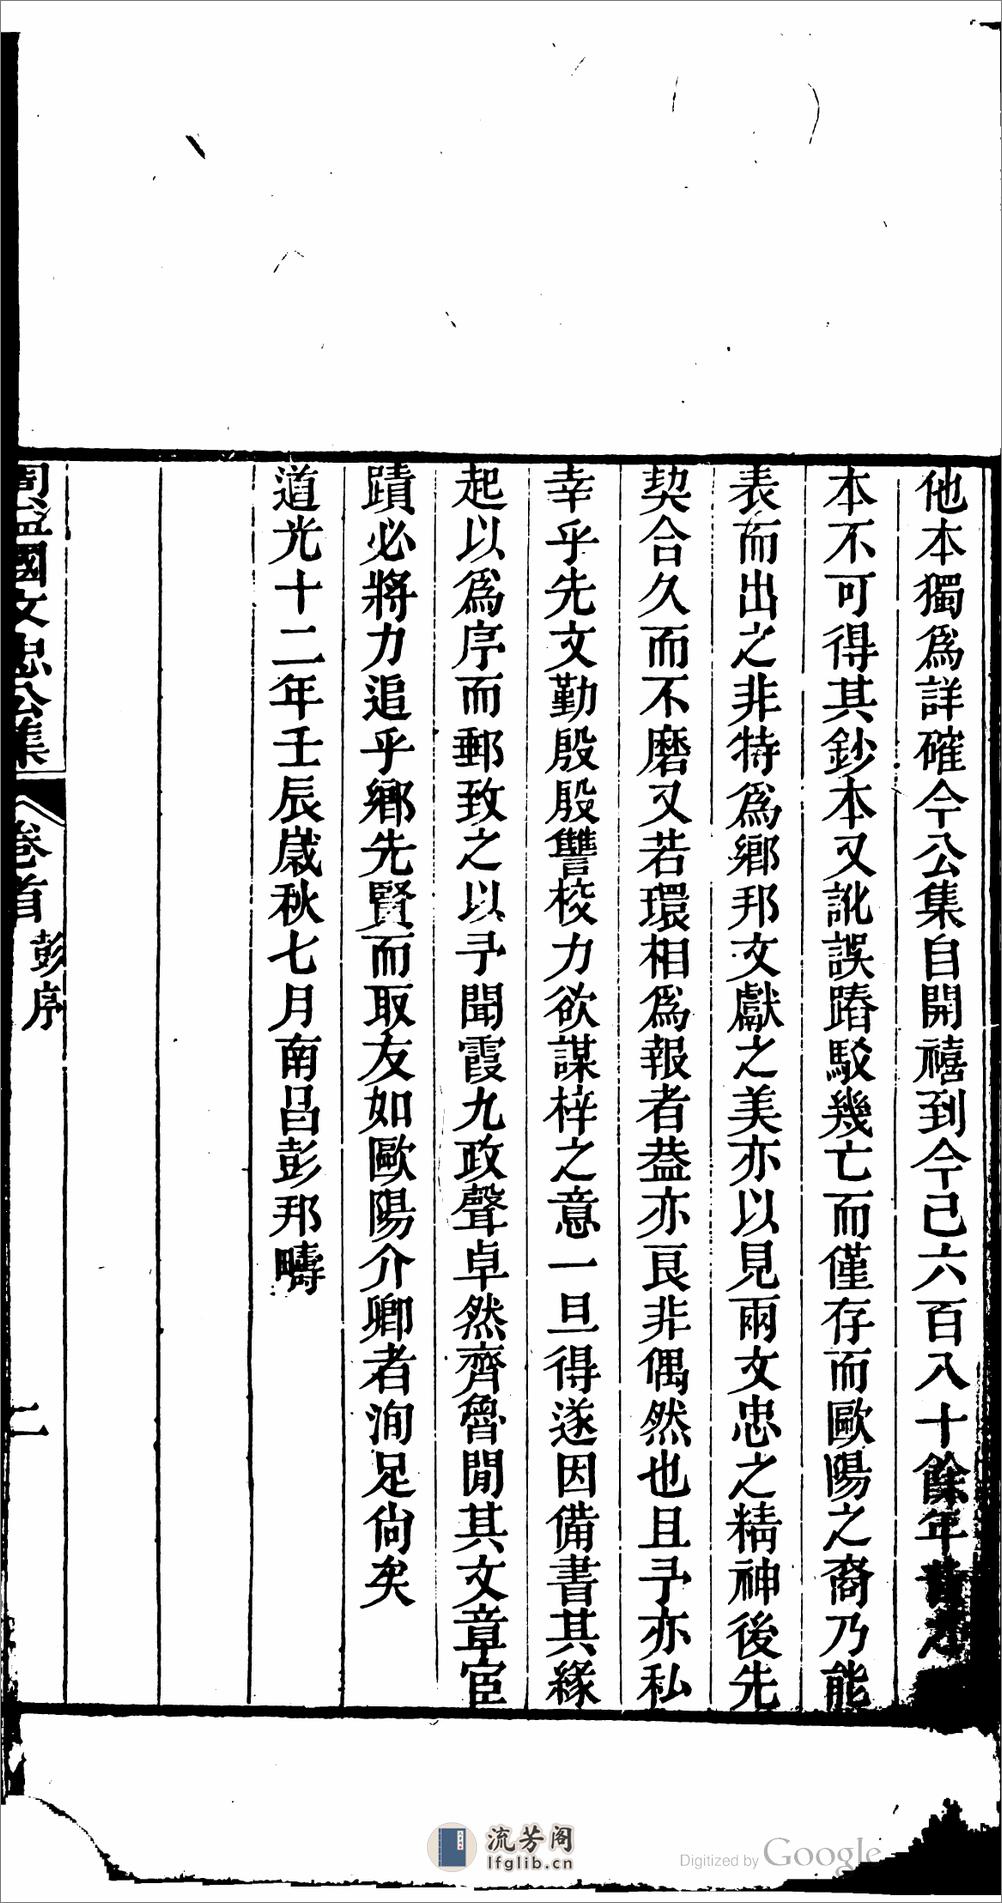 他本獨爲詳確今公集自開禧到今己六百八十餘年
本不可得其鈔本又訛誤踳駁幾亡而僅存而歐陽之裔乃能
表而出之非特爲鄕邦文獻之美亦以見兩文忠之精神後先
契合久而不磨又若環相爲報者葢亦良非偶然也且予亦私
幸乎先文勤殷殷讐校力欲謀梓之意一旦得遂因備書其緣
起以爲序而郵致之以予聞霞九政聲卓然齊魯閒其文章宦
蹟必將力追乎鄕先賢而取友如歐陽介卿者洵足尙矣
道光十二年壬辰歲秋七月南昌彭邦疇
周益國文忠公集
卷首
彭序
二
流芳阁
lfglib.cn
Digitized by Google